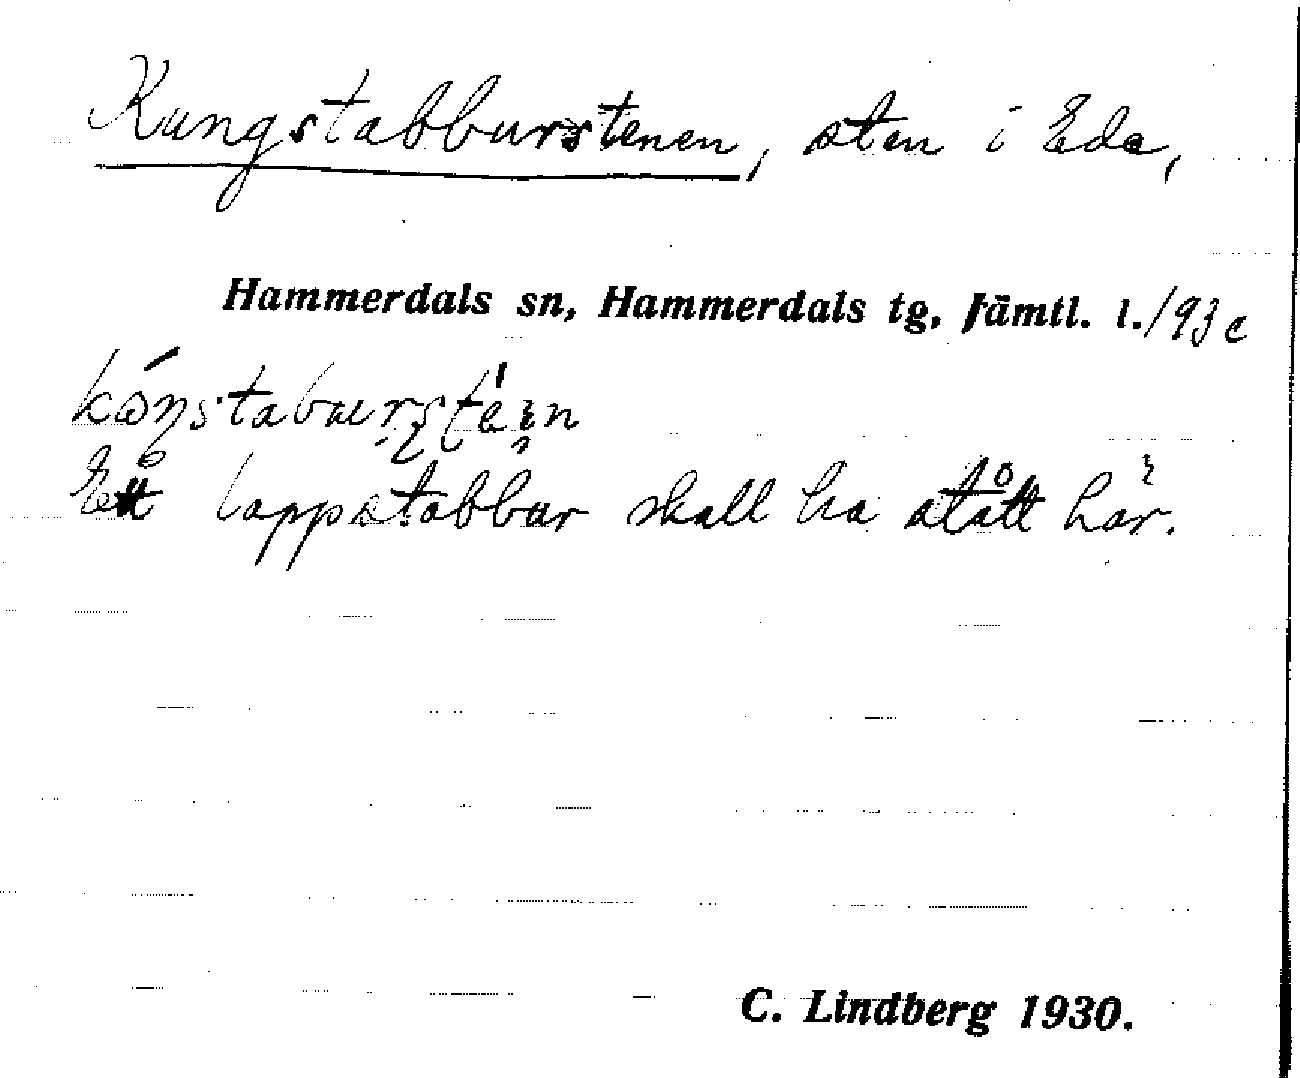 Kungstabburstenen, sten i Ede,
Hammerdals sn, Hammerdals tg, Jämtl. l. /93 c
Ett lappstabbur skall ha stått här.
C. Lindberg 1930.